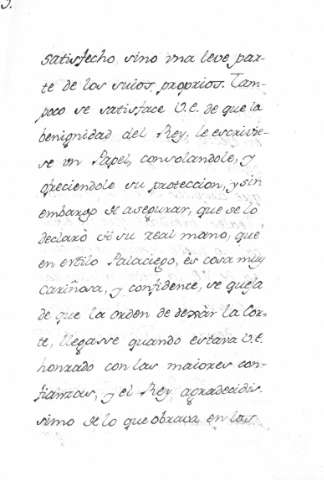 satisfecho, sino vna leve par-
te de los suios proprios. Tam-
poco se satisface V.E. de que la
benignidad del Rey, le escrivie-
se vn Papel, consolandole, y
ofreciendole su protección, y sin
embargo de asegurar, que se lo
declarò de su real mano, que
en estilo Palaciego, es cosa muy
cariñosa, y confidente, se queja
de que la orden de dexàr la Cor-
te, llegasse quando estava V.E.
honrado con las maiores con-
fianzas, y el Rey agradecidis-
simo de lo que obrava en las